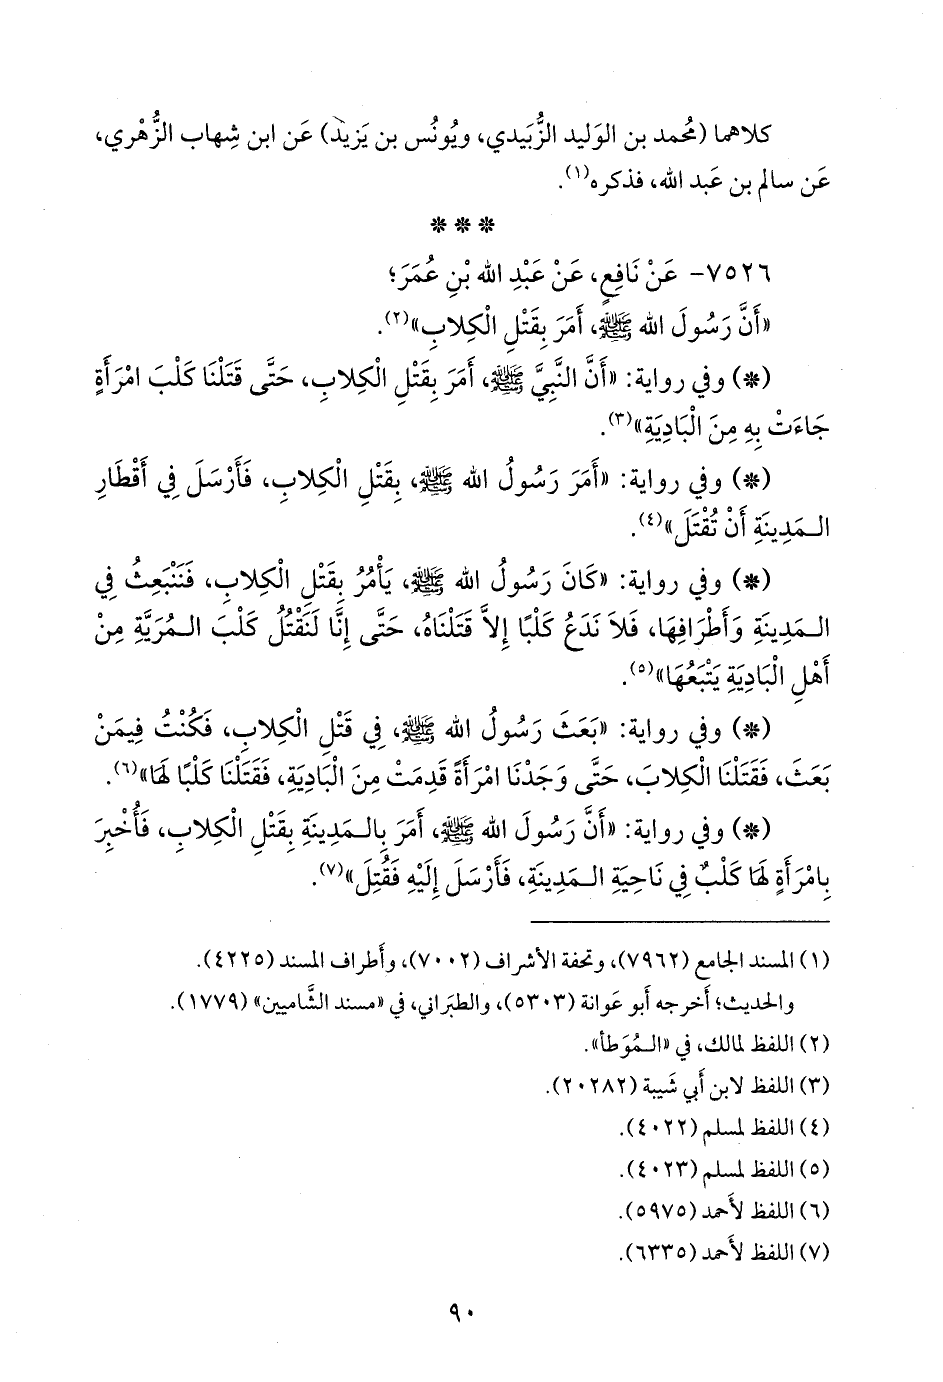 كلاهما (مُحمد بن الوَليد الزُّبَيدي، ويُونُس بن يَزيد) عَن ابن شِهاب الزُّهْري،
عَن سالم بن عَبد الله، فذكره(١).
* * *
٧٥٢٦- عَنْ نَافِعٍ، عَنْ عَبْدِ الله بْنِ عُمَرَ؛
«أَنَّ رَسُولَ الله ﷺ، أَمَرَ بِقَتْلِ الْكِلَابِ»(٢).
(*) وفي رواية: «أَنَّ النَّبِيَّ ﷺ، أَمَرَ بِقَتْلِ الْكِلَابِ، حَتَّى قَتَلْنَا كَلْبَ امْرَأَةٍ
جَاءَتْ بِهِ مِنَ الْبَادِيَةِ»(٣).
(*) وفي رواية: «أَمَرَ رَسُولُ الله ﷺ، بِقَتْلِ الْكِلَابِ، فَأَرْسَلَ فِي أَقْطَارِ
الـمَدِينَةِ أَنْ تُقْتَلَ»(٤).
(*) وفي رواية: «كَانَ رَسُولُ الله ﷺ، يَأْمُرُ بِقَتْلِ الْكِلَابِ، فَنَنْبَعِثُ فِي
الـمَدِينَةِ وَأَطْرَافِهَا، فَلَا نَدَعُ كَلْبًا إِلاَّ قَتَلْنَاهُ، حَتَّى إِنَّا لَنَقْتُلُ كَلْبَ الـمُرَيَّةِ مِنْ
أَهْلِ الْبَادِيَةِ يَتْبَعُهَا»(٥).
(*) وفي رواية: «بَعَثَ رَسُولُ الله ﷺ، فِي قَتْلِ الْكِلَابِ، فَكُنْتُ فِيمَنْ
بَعَثَ، فَقَتَلْنَا الْكِلَابَ، حَتَّى وَجَدْنَا امْرَأَةً قَدِمَتْ مِنَ الْبَادِيَةِ، فَقَتَلْنَا كَلْبًا لَهَا»(٦).
(*) وفي رواية: «أَنَّ رَسُولَ الله ﷺ، أَمَرَ بِالـمَدِينَةِ بِقَتْلِ الْكِلَابِ، فَأُخْبِرَ
بِامْرَأَةٍ لَهَا كَلْبٌ فِي نَاحِيَةِ الـمَدِينَةِ، فَأَرْسَلَ إِلَيْهِ فَقُتِلَ»(٧).
(١) المسند الجامع (٧٩٦٢)، وتحفة الأشراف (٧٠٠٢)، وأطراف المسند (٤٢٢٥).
والحديث؛ أخرجه أبو عَوانة (٥٣٠٣)، والطبَراني، في «مسند الشَّاميين» (١٧٧٩).
(٢) اللفظ لمالك، في «الـمُوَطأ».
(٣) اللفظ لابن أبي شَيبة (٢٠٢٨٢).
(٤) اللفظ لمسلم (٤٠٢٢).
(٥) اللفظ لمسلم (٤٠٢٣).
(٦) اللفظ لأَحمد (٥٩٧٥).
(٧) اللفظ لأَحمد (٦٣٣٥).
٩٠